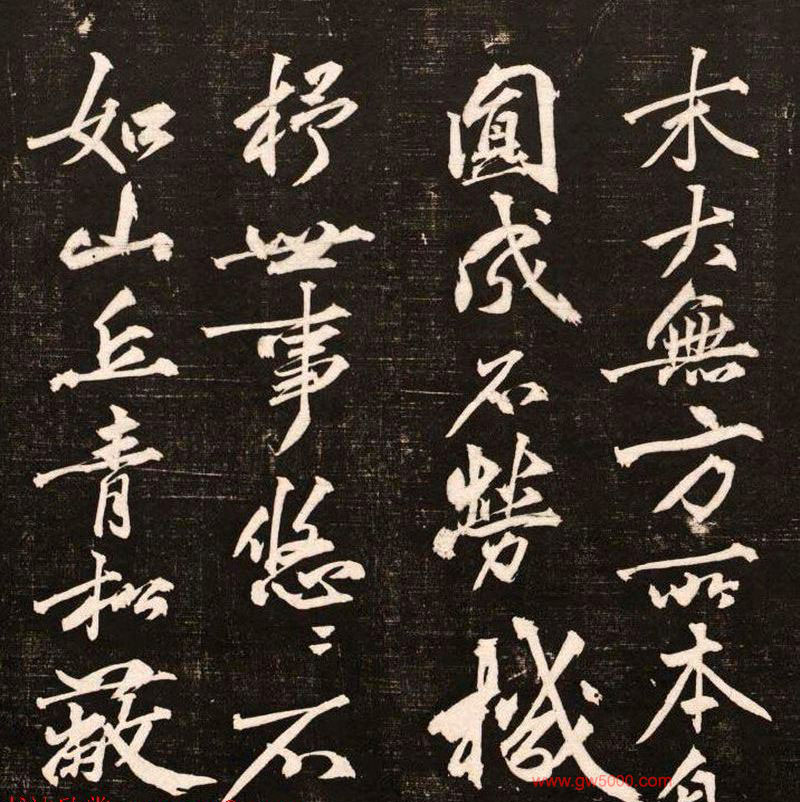 末大無方所本自
圓成不勞機
杼世事悠々不
如山丘青松蔽
www.gw5000.com